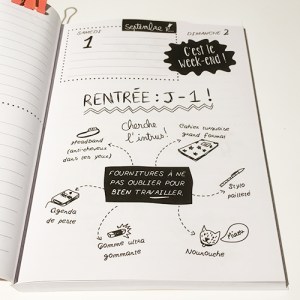 septembre
SAMEDI
1
DIMANCHE 2
C'est le
WEEK-END !
RENTRÉE : J-1 !
Cherche
l'intrus
Headband
(anti-cheveux
dans les yeux)
Cahier turquoise
grand format
FOURNITURES À NE
PAS OUBLIER POUR
BIEN TRAVAILLER.
Agenda
de peste
Stylo
pailleté
Gomme ultra
gommante
Nounouche